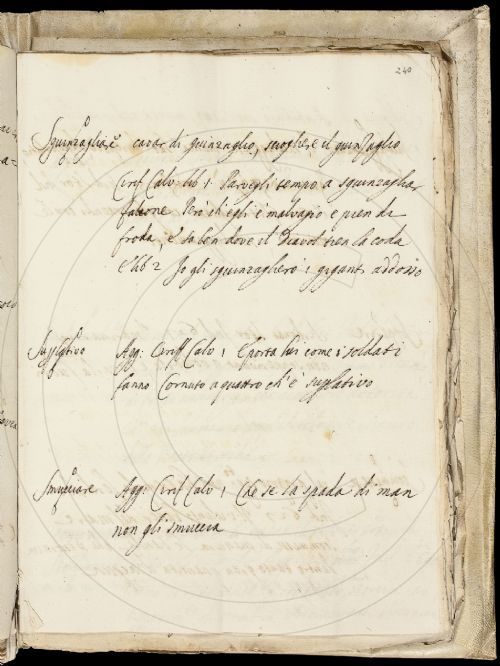 240
Sguinzagliare cavar di guinzaglio, sciogliere il guinzaglio
Cirif Calv. lib 1 Parvegli tempo a sguinzagliar
falcone Però ch'egli è malvagio e pien di
froda, e sa ben dove il Diavol tien la coda
e lib 2 Io gli sguinzagliero i giganti addosso
Supplativo Agg: Ciriff Calv 1 E porta lui come i soldati
fanno Cornuto a quattro ch'è supplativo
Smucciare Agg: Cirif Calv 1 Che se la spada di man
non gli smuccia